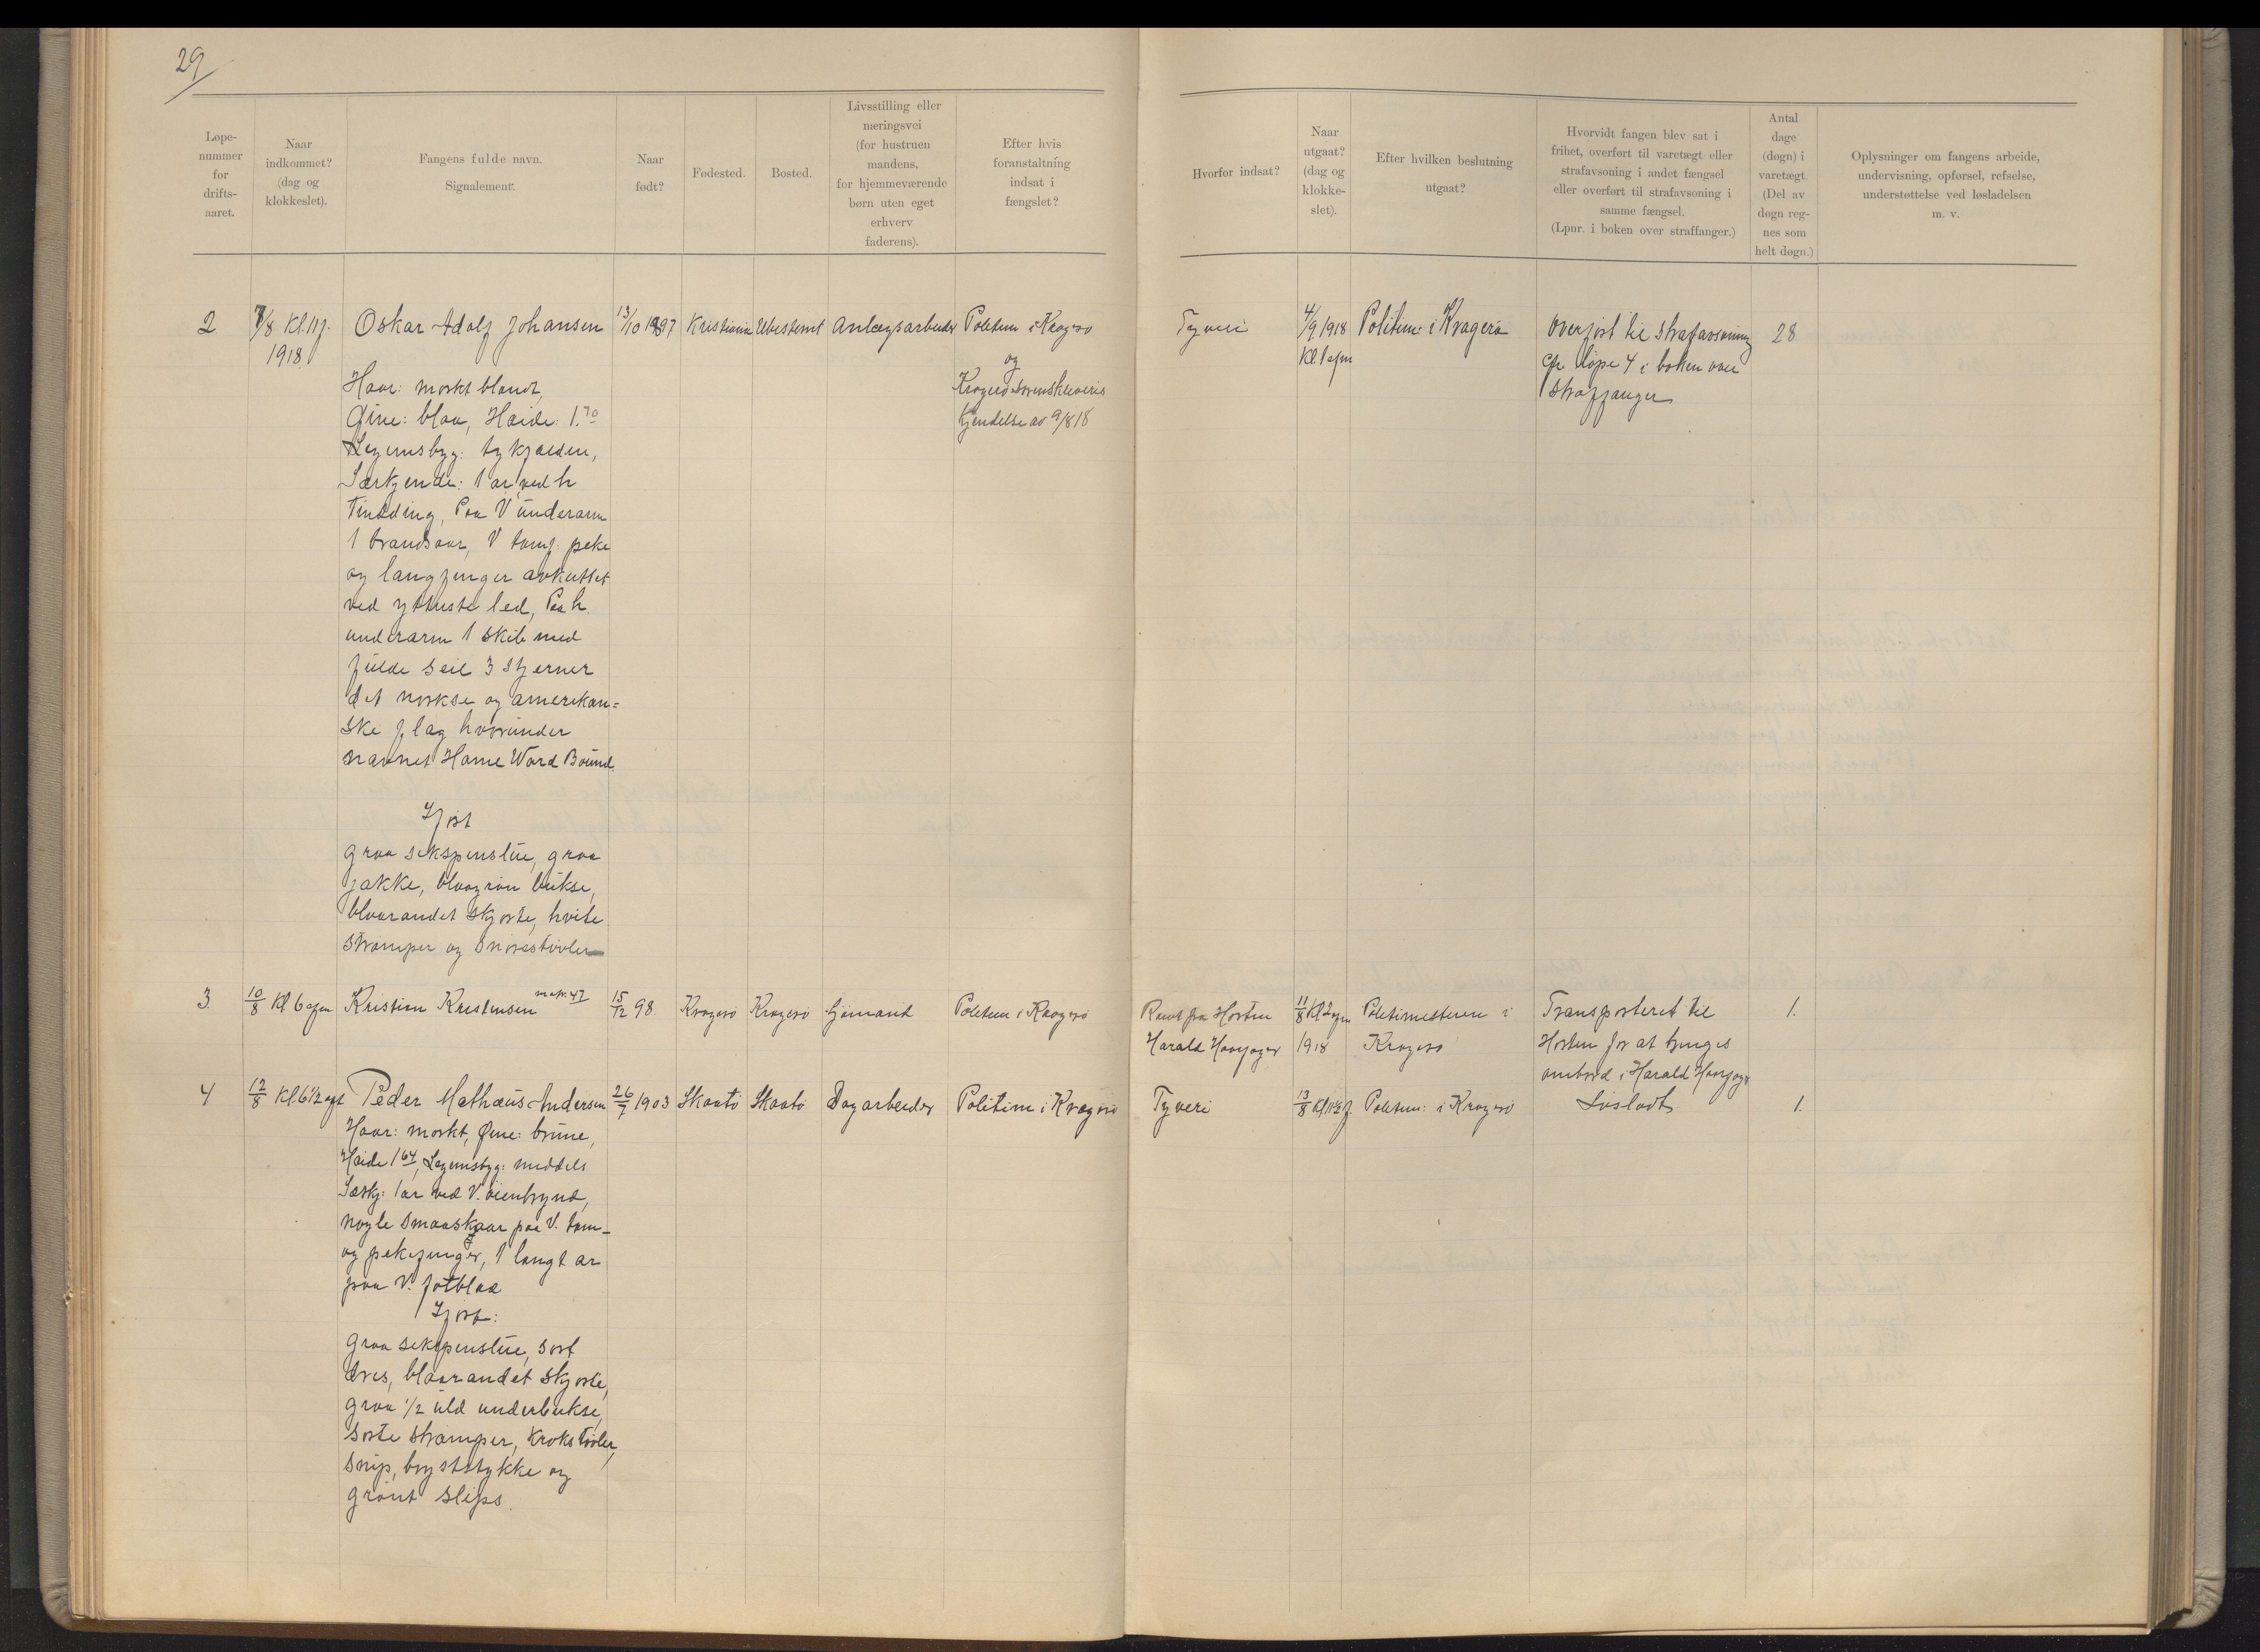 29
Løpe-
nummer
for
drifts-
aaret.
Naar
indkommet?
(dag og
klokkeslet).
Fangens fulde navn.
Signalement.
Naar
født?
Fødested.
Bosted.
Livsstilling eller
næringsvei
(for hustruen
mandens,
for hjemmeværende
børn uten eget
erhverv
faderens).
Efter hvis
foranstaltning
indsat i
fængslet?
Hvorfor indsat?
Naar
utgaat?
(dag og
klokke-
slet).
Efter hvilken beslutning
utgaat?
Hvorvidt fangen blev sat i
frihet, overført til varetægt eller
strafavsoning i andet fængsel
eller overført til strafavsoning i
samme fængsel.
(Lpnr. i boken over straffanger.)
Antal
dage
(døgn) i
varetægt
(Del av
døgn reg-
nes som
helt døgn.)
Oplysninger om fangens arbeide,
undervisning, opførsel, refselse,
understøttelse ved løsladelsen
m. v.
2 7/8 Kl. 11 f. Oskar Adolf Johansen 13/10 1897 Kristiania Ubestemt Anlægsarbeider Politim i Kragerø Tyveri 4/9 1918 Politim: i Kragerø Overført til strafavsoning 28
1918
og
Kl 1 efm
cfr. løpe 4 i boken over
Haar: mørkt blondt,
Kragerø sorenskriveris
straffanger
Øine: blaa, Høide: 1.70
Kjendelse av 9/8 18
Legemsbyg: tykfalden,
Særkjende: 1 ar ved h
Tinding, Paa V underarm
1 brandsaar, V tomf. peke
og langfinger avkuttet
ved ytterste led, Paa h.
underarm 1 skib med
fulde seil 3 stjerner
det norkse og amerikan=
ske flag hvorunder
navnet Home Ward Bound.
Iført
graa sekspenslue, graa
jakke, blaagrøn bukse,
blaarandet skjorte, hvite
strømper og snørestøvler
3 10/8 Kl 6 efm Kristian Kristensen matr. 47 15/12 98 Kragerø Kragerø Sjømand Politim i Kragerø Rømt fra Horten 11/8 Kl. 2 efm Politimesteren i Transporteret til 1.
Harald Haarfager 1918 Kragerø Horten for at bringes
ombord i Harald Haarfager
4 12/8 Kl 6 1/2 eft Peder Mathæus Andersen 26/7 1903 Skaatø Skaatø Dagarbeider Politim i Kragerø Tyveri 13/8 Kl 11 1/2 f. Politim: i Kragerø Løslatt 1.
Haar: mørkt, Øine: brune,
Høide 1 64, Legemsbyg: middels
Særkj: 1 ar ved V. øienbryn,
nogle smaa skaar paa V. tom-
og pekefinger, 1 langt ar
paa V. fotblad
Iført:
graa sekspenslue, sort
dres, blaarandet skjorte,
graa 1/2 uld underbukse,
sorte strømper, krokstøvler,
snip, bryststykke og
grønt slips.